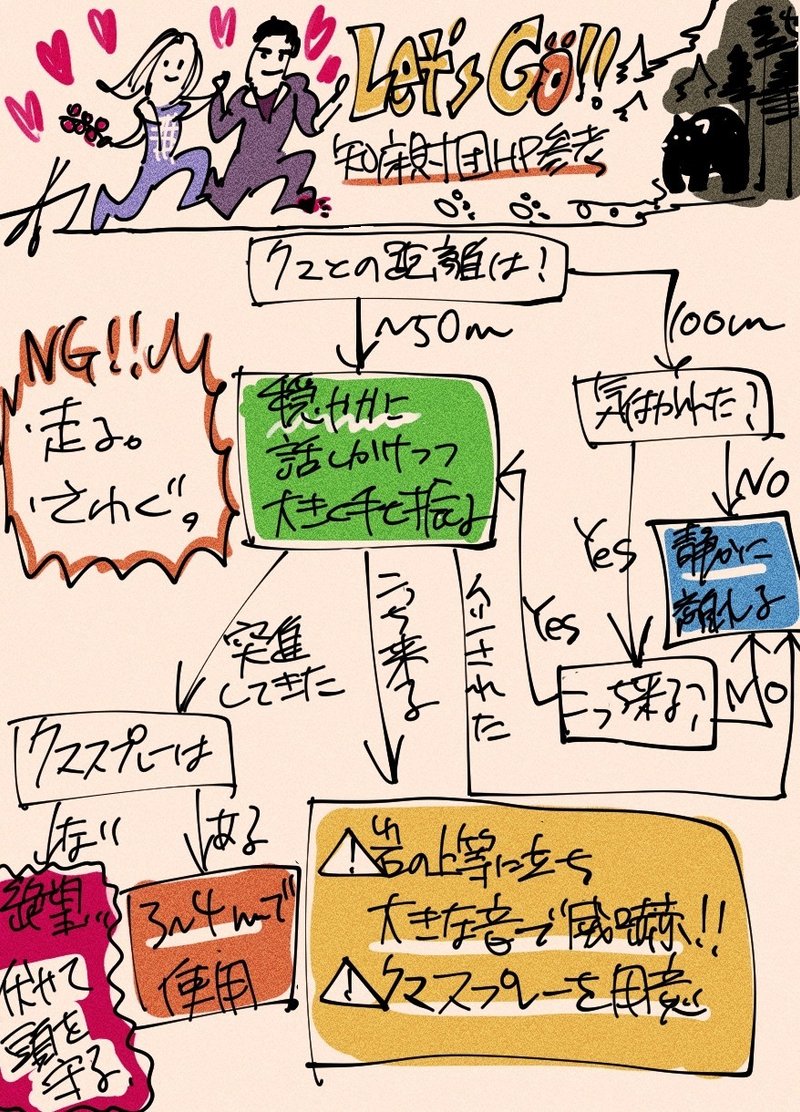 Let's Go!!
知床財団HP参考
クマとの距離は!
~50m
100m
NG!!
走る。
さわぐ。
穏やかに
話しかけつつ
大きく手を振る
気付かれた?
NO
Yes
静かに
離れる
こっち来る?
Yes
NO
突進
してきた
こっち来る
クマスプレーは
ない
ある
絶望…
伏せて
頭を
守る
3~4mで
使用
⚠岩の上等に立ち
大きな音で威嚇!!
⚠クマスプレーを用意